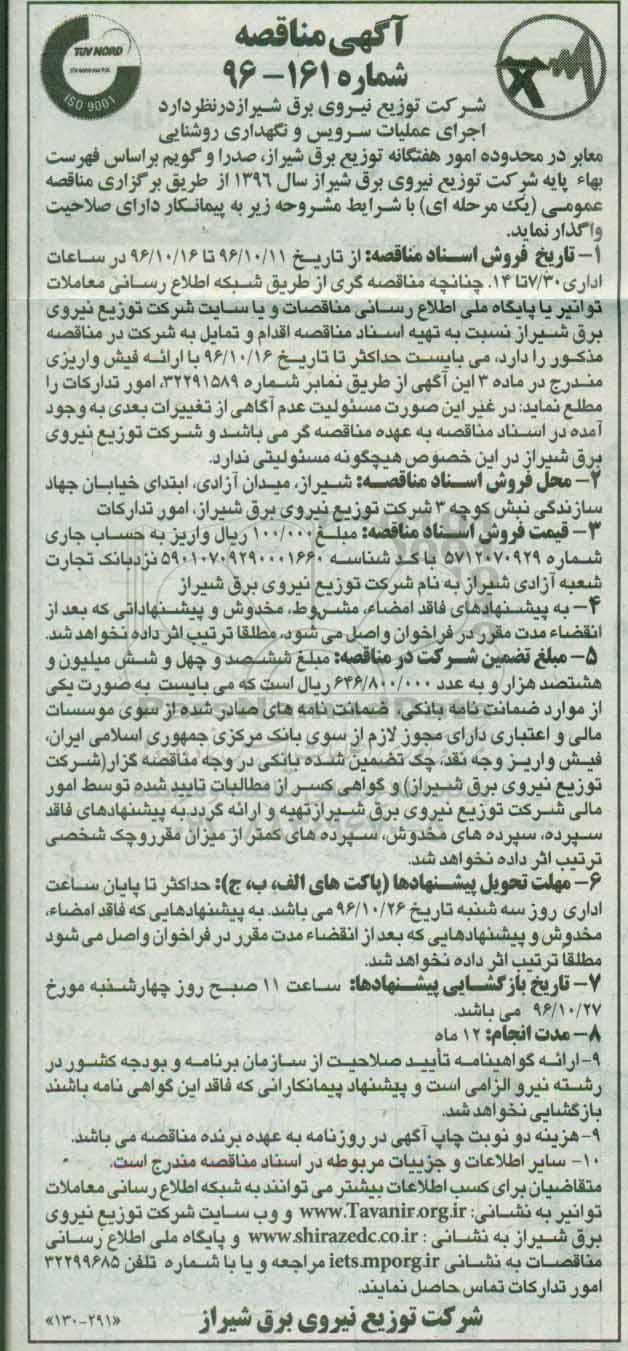 آگهی مناقصه
شماره ۱۶۱-۹۶
TUV NORD
ISO 9001
شرکت توزیع نیروی برق شیراز درنظر دارد
اجرای عملیات سرویس و نگهداری روشنایی
معابر در محدوده امور هفتگانه توزیع برق شیراز، صدرا و گویم براساس فهرست
بهاء پایه شرکت توزیع نیروی برق شیراز سال ۱۳۹۶ از طریق برگزاری مناقصه
عمومی (یک مرحله ای) با شرایط مشروحه زیر به پیمانکار دارای صلاحیت
واگذار نماید.
۱- تاریخ فروش اسناد مناقصه: از تاریخ ۹۶/۱۰/۱۱ تا ۹۶/۱۰/۱۶ در ساعات
اداری ۷/۳۰ تا ۱۴. چنانچه مناقصه گری از طریق شبکه اطلاع رسانی معاملات
توانیر یا پایگاه ملی اطلاع رسانی مناقصات و یا سایت شرکت توزیع نیروی
برق شیراز نسبت به تهیه اسناد مناقصه اقدام و تمایل به شرکت در مناقصه
مذکور را دارد، می بایست حداکثر تا تاریخ ۹۶/۱۰/۱۶ با ارائه فیش واریزی
مندرج در ماده ۳ این آگهی از طریق نمابر شماره ۳۲۲۹۱۵۸۹، امور تدارکات را
مطلع نماید: در غیر این صورت مسئولیت عدم آگاهی از تغییرات بعدی به وجود
آمده در اسناد مناقصه به عهده مناقصه گر می باشد و شرکت توزیع نیروی
برق شیراز در این خصوص هیچگونه مسئولیتی ندارد.
۲- محل فروش اسناد مناقصه: شیراز، میدان آزادی، ابتدای خیابان جهاد
سازندگی نبش کوچه ۳ شرکت توزیع نیروی برق شیراز، امور تدارکات
۳- قیمت فروش اسناد مناقصه: مبلغ ۱۰۰/۰۰۰ ریال واریز به حساب جاری
شماره ۵۷۱۲۰۷۰۹۲۹ با کد شناسه ۵۹۰۱۰۷۰۹۲۹۰۰۰۱۶۶۰ نزد بانک تجارت
شعبه آزادی شیراز به نام شرکت توزیع نیروی برق شیراز
۴- به پیشنهادهای فاقد امضاء، مشروط، مخدوش و پیشنهاداتی که بعد از
انقضاء مدت مقرر در فراخوان واصل می شود، مطلقا ترتیب اثر داده نخواهد شد.
۵- مبلغ تضمین شرکت در مناقصه: مبلغ ششصد و چهل و شش میلیون و
هشتصد هزار و به عدد ۶۴۶/۸۰۰/۰۰۰ ریال است که می بایست به صورت یکی
از موارد ضمانت نامه بانکی، ضمانت نامه های صادر شده از سوی موسسات
مالی و اعتباری دارای مجوز لازم از سوی بانک مرکزی جمهوری اسلامی ایران،
فیش واریز وجه نقد، چک تضمین شده بانکی در وجه مناقصه گزار(شرکت
توزیع نیروی برق شیراز) و گواهی کسر از مطالبات تایید شده توسط امور
مالی شرکت توزیع نیروی برق شیراز تهیه و ارائه گردد. به پیشنهادهای فاقد
سپرده، سپرده های مخدوش، سپرده های کمتر از میزان مقرر و چک شخصی
ترتیب اثر داده نخواهد شد.
۶- مهلت تحویل پیشنهادها (پاکت های الف، ب، ج): حداکثر تا پایان ساعت
اداری روز سه شنبه تاریخ ۹۶/۱۰/۲۶ می باشد. به پیشنهادهایی که فاقد امضاء،
مخدوش و پیشنهادهایی که بعد از انقضاء مدت مقرر در فراخوان واصل می شود
مطلقا ترتیب اثر داده نخواهد شد.
۷- تاریخ بازگشایی پیشنهادها: ساعت ۱۱ صبح روز چهارشنبه مورخ
۹۶/۱۰/۲۷ می باشد.
۸- مدت انجام: ۱۲ ماه
۹-ارائه گواهینامه تأیید صلاحیت از سازمان برنامه و بودجه کشور در
رشته نیرو الزامی است و پیشنهاد پیمانکارانی که فاقد این گواهی نامه باشند
بازگشایی نخواهد شد.
۹-هزینه دو نوبت چاپ آگهی در روزنامه به عهده برنده مناقصه می باشد.
۱۰- سایر اطلاعات و جزییات مربوطه در اسناد مناقصه مندرج است.
متقاضیان برای کسب اطلاعات بیشتر می توانند به شبکه اطلاع رسانی معاملات
توانیر به نشانی: www.Tavanir.org.ir و وب سایت شرکت توزیع نیروی
برق شیراز به نشانی : www.shirazedc.co.ir و پایگاه ملی اطلاع رسانی
مناقصات به نشانی iets.mporg.ir مراجعه و یا با شماره تلفن ۳۲۲۹۹۶۸۵
امور تدارکات تماس حاصل نمایند.
شرکت توزیع نیروی برق شیراز
«۱۳۰-۲۹۱»